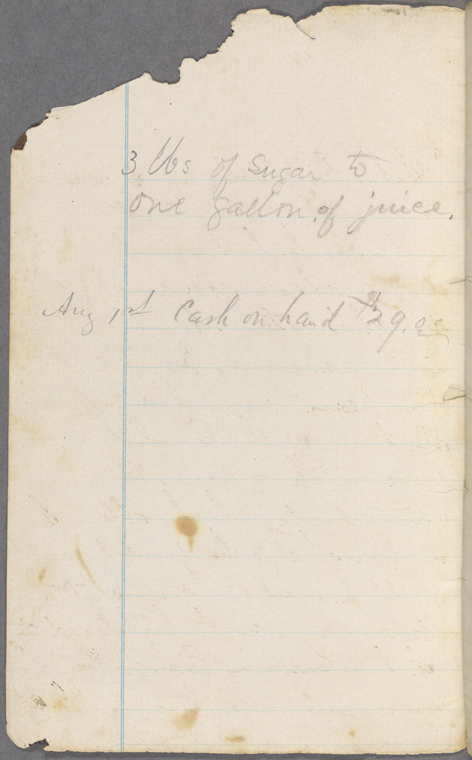 3 lbs of sugar to
one gallon of juice.
Aug 1st Cash on hand $29.00